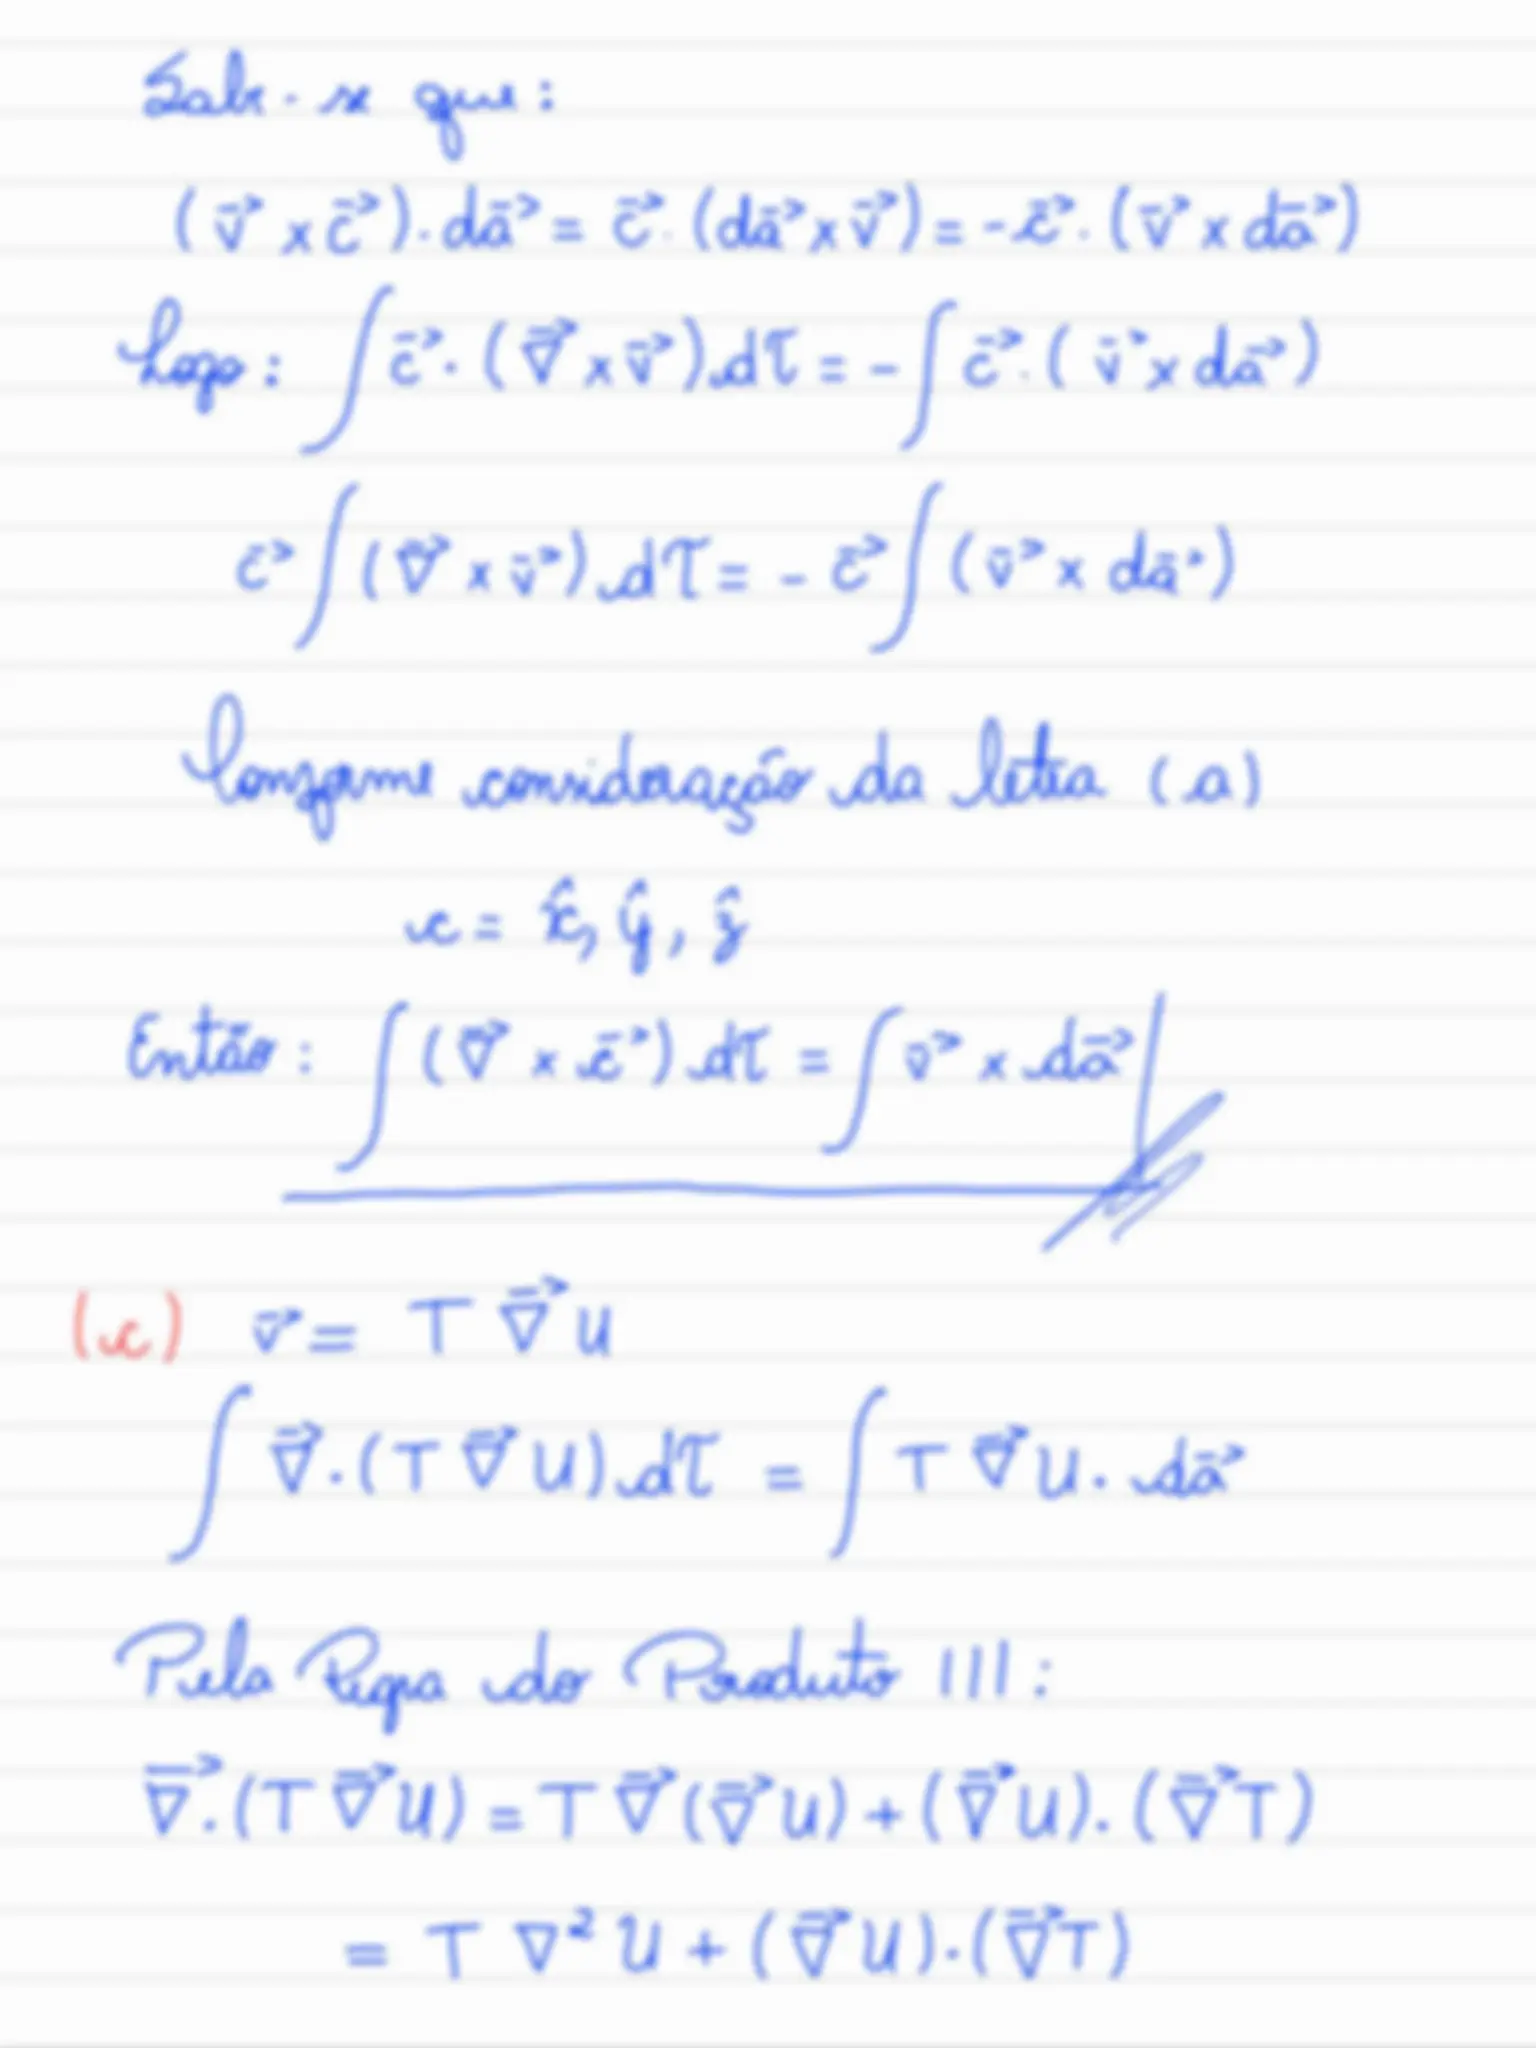 Sabe-se que:
(v⃗ × c⃗) · da⃗ = c⃗ · (da⃗ × v⃗) = -c⃗ · (v⃗ × da⃗)
Logo: ∫ c⃗ · (∇⃗ × v⃗) dτ = - ∫ c⃗ · (v⃗ × da⃗)
c⃗ ∫ (∇⃗ × v⃗) dτ = - c⃗ ∫ (v⃗ × da⃗)
Conforme consideração da letra (a)
c = x̂, ŷ, ẑ
Então: ∫ (∇⃗ × c⃗) dτ = ∫ v⃗ × da⃗
(c) v⃗ = T ∇⃗ U
∫ ∇⃗ · (T ∇⃗ U) dτ = ∫ T ∇⃗ U · da⃗
Pela Regra do Produto III:
∇⃗ · (T ∇⃗ U) = T ∇⃗ (∇⃗ U) + (∇⃗ U) · (∇⃗ T)
= T ∇² U + (∇⃗ U) · (∇⃗ T)